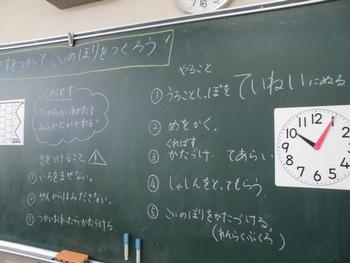 すをつかって こいのぼりをつくろう!
くれぱす
ちからのいれかたで
みえかたがかわる!
きをつけること
① いろをまぜない。
② せんからはみださない。
③ つかいおわったらかたづける
やること
① うろことしっぽを ていねいにぬる
② めをかく。
くれぱす
③ かたづけ てあらい
④ しゃしんをとってもらう。
⑤ こいのぼりをかたづける。
(れんらくぶくろ)
12
1
2
3
4
5
6
7
8
9
10
11